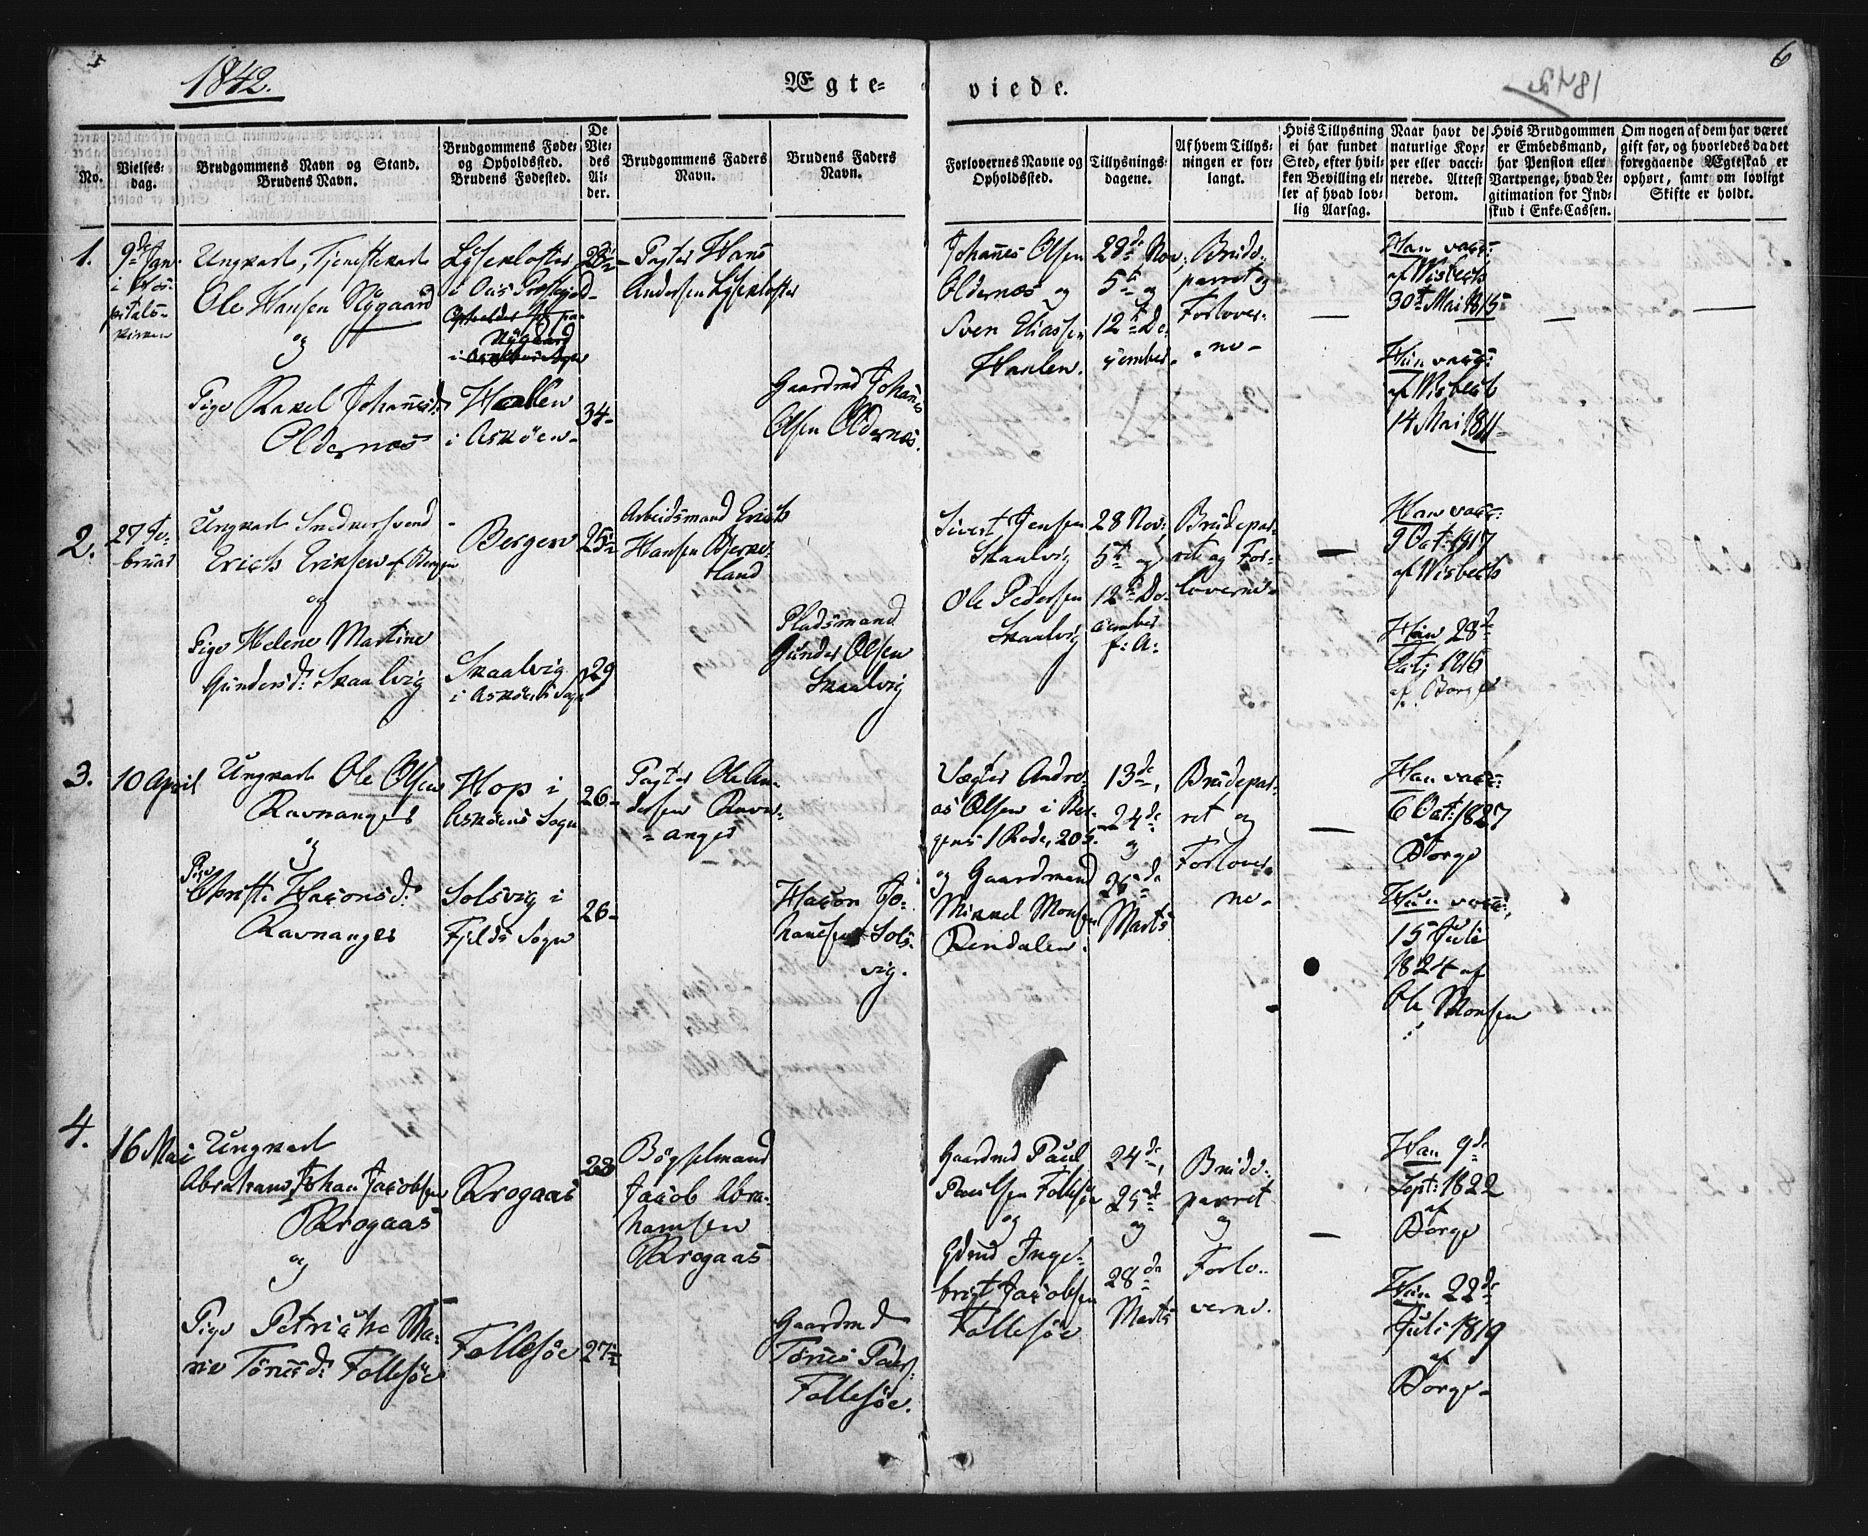 1842.
Ægte-
viede.
6
No.
Vielses-
dag.
Brudgommens Navn og Stand.
Brudens Navn.
Brudgommens Føde-
og Opholdssted.
Brudens Fødested.
De
Vie-
des
Al-
der.
Brudgommens Faders
Navn.
Brudens Faders
Navn.
Forlovernes Navne og
Opholdssted.
Tillysnings-
dagene.
Af hvem Tillys-
ningen er for-
langt.
Hvis Tillysning
ei har fundet
Sted, efter hvil-
ken Bevilling el-
ler af hvad lov-
lig Aarsag.
Naar havt de
naturlige Kop-
per eller vacci-
nerede. Attest
derom.
Hvis Brudgommen
er Embedsmand,
har Pension eller
Vartpenge, hvad Le-
gitimation for Ind-
skud i Enke-Cassen.
Om nogen af dem har været
gift før, og hvorledes da det
foregaaende Ægteskab er
ophørt, samt om lovligt
Skifte er holdt.
1.
9de Jan.
i Hos-
pitals-
kirken
Ungkarl, Tjenestekarl
Ole Hansen Nygaard
og
Pige Rakel Johannesd:
Oldernæs
Lysekloster
i Ous Præstegjeld
Nygaard
Hallen
i Askøen
28
34
Pagter Hans
Andersen Lysekloster
Gaardmd Johannes
Olsen Oldernæs.
Johannes Olsen
Oldernæs og
Sven Eliassen
Hanlen.
29de Nov,
5te og
12te De-
cember.
Brude-
parret og
Forlover-
ne
Han vacc:
af Wisbech
30te Mai 1815
Hun vacc:
af Wisbech
14 Mai 1811
2.
27 Fe-
bruar
Ungkarl Snedkersvend
Erich Eriksen af Bergen
og
Pige Helene Martine
Gundersd: Skaalvig
Bergen
Skaalvig
i Askøens Sogn
25
29
Arbeidsmand Erich
Hansen Bierke-
land
Pladsmand
Gunder Olsen
Skaalvig
Sivert Jensen
Skaalvig
Ole Pedersen
Skaalvig
28 Nov:
5te og
12te De-
cember
f: A:
Brudepar-
ret og For-
loverne
Han vacc:
9 Oct: 1817
af Wisbech
Hun 28de
Oct: 1816
af Borge
3.
10 April
Ungkarl Ole Olsen
Ravnanger
og
Pige
Christi Haconsd:
Ravnanger
Hop i
Askøens Sogn
Solsvig i
Fjelds Sogn
26
26
Pagter Ole An-
dersen Ravn-
anger
Hacon Jo-
hannesen Sols-
vig.
Vægter Andre-
as Olsen i Ber-
gens 1 Rode, 205.
og Gaardmand
Mikkel Monsen
Rendalen.
13de,
24de
og
28de
Marts
Brudepar-
ret og
Forlover-
ne
Han vacc:
6 Oct: 1827
Borge
Hun vacc:
15 Juli
1824 af
Ole Monsen
4.
16 Mai
Ungkarl
Abraham Johan Jacobsen
Krogaas
og
Pige Petriche Ma-
rie Tønnesd: Follesøe
Krogaas
Follesøe
28
27
Bøgselmand
Jacob Abra-
hamsen
Krogaas
Gaardmd
Tønnes Peders:
Follesøe.
Gaardmd Paul
Paulsen Follesøe
og
Gdmd Inge-
brigt Jacobsen
Follesøe
24de,
25de
og
28de
Marts
Brude-
parret
og
Forlo-
verne.
Han 9de
Sept: 1822
af
Borge
Hun 22de
Juli 1819
af
Borge